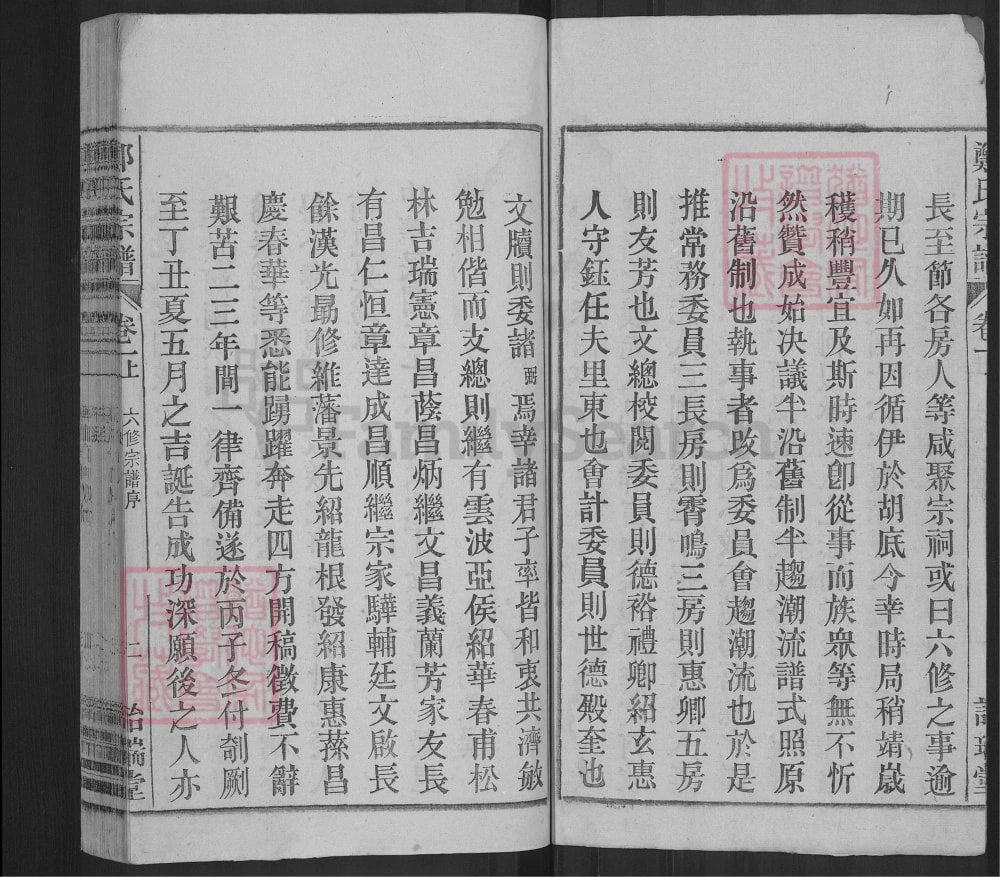 長至節各房人等咸聚宗祠或曰六修之事逾
期已久如再因循伊於胡底今幸時局稍靖歲
穫稍豐宜及斯時速卽從事而族衆等無不忻
然贊成始決議半沿舊制半趨潮流譜式照原
沿舊制也執事者改爲委員會趨潮流也於是
推常務委員三長房則霽鳴三房則惠卿五房
則友芳也文總校閱委員則德裕禮卿紹玄惠
人守鈺任夫里東也會計委員則世德殿奎也
文牘則委諸弼焉幸諸君子率皆和衷共濟敏
勉相偕而支總則繼有雲波亞侯紹華春甫松
林吉瑞憲章昌蔭昌炳繼文昌義蘭芳家友長
有昌仁恒章達成昌順繼宗家驊輔廷文啟長
餘漢光勗修維藩景先紹龍根發紹康惠蓀昌
慶春華等悉能踴躍奔走四方開稿徵費不辭
艱苦二三年間一律齊備遂於丙子冬付剞劂
至丁丑夏五月之吉誕告成功深願後之人亦
鄭氏宗譜
卷一上
六修宗譜序
二
詒瑞堂
FamilySearch